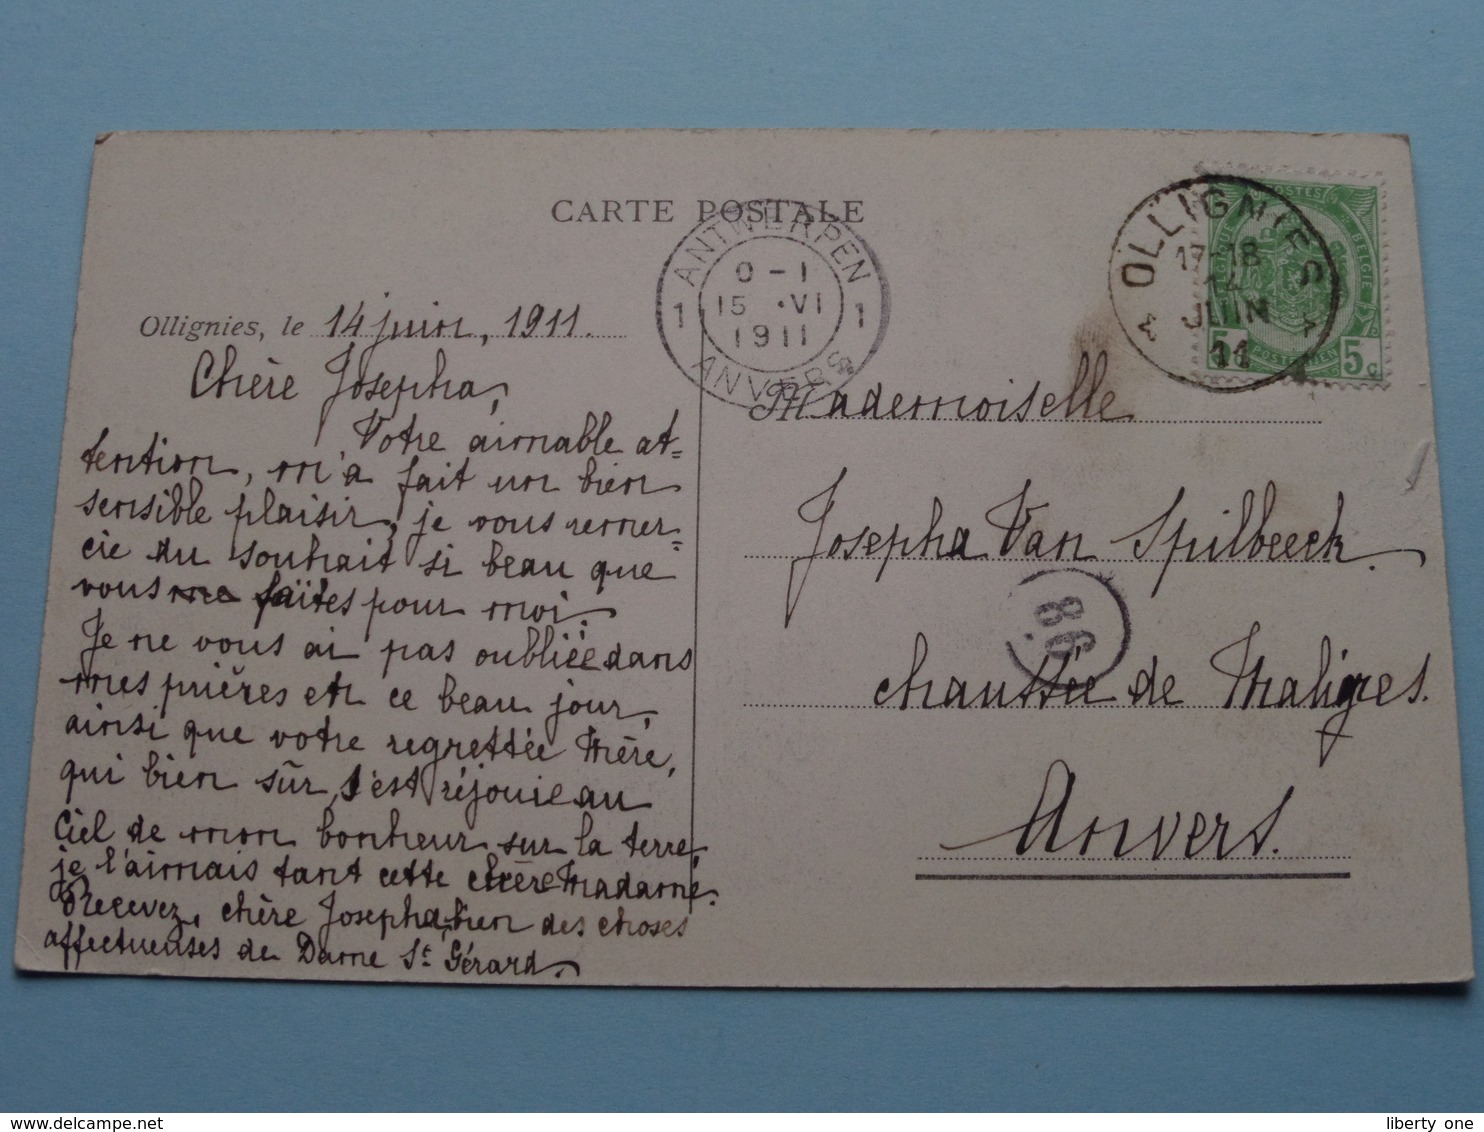 CARTE POSTALE
ANTWERPEN
0-1
15 ·VI
1911
1 1
ANVERS
OLLIGNIES
17-18
14
JUIN
11
POSTES
BELGIE
5 POSTERIJEN 5c
Ollignies, le 14 juin, 1911.
Chère Josepha,
Votre aimable at=
tention, m'a fait un bien
sensible plaisir, je vous remer=
cie du souhait si beau que
vous me faites pour moi.
Je ne vous ai pas oubliée dans
mes prières en ce beau jour,
ainsi que votre regrettée Mère,
qui bien sûr, s'est réjouie au
Ciel de mon bonheur sur la terre,
je l'aimais tant cette chère Madame.
Recevez, chère Josepha, bien des choses
affectueuses de Dame St Gérard.
Mademoiselle
Josepha Van Spilbeeck.
86
chaussée de Malines.
Anvers.
liberty one